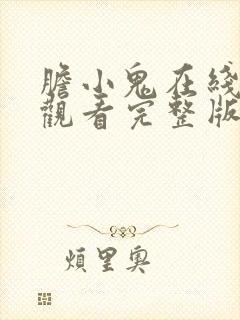 膽小鬼在綫
觀看完整版
煩里奧